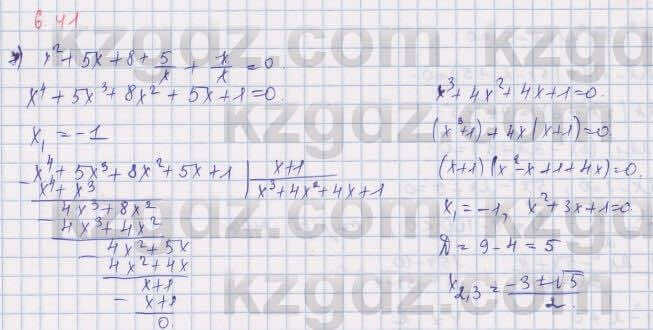 6.41
x² + 5x + 8 + 5/x + x/x = 0
x⁴ + 5x³ + 8x² + 5x + 1 = 0.
x₁ = -1
x⁴ + 5x³ + 8x² + 5x + 1 | x+1
- x⁴ + x³ | x³ + 4x² + 4x + 1
4x³ + 8x²
- 4x³ + 4x²
4x² + 5x
- 4x² + 4x
x+1
- x+1
0.
x³ + 4x² + 4x + 1 = 0.
(x³+1) + 4x(x+1) = 0
(x+1)(x² - x + 1 + 4x) = 0.
x₁ = -1, x² + 3x + 1 = 0
D = 9 - 4 = 5
x₂,₃ = (-3 ± √5)/2
kzgdz.com